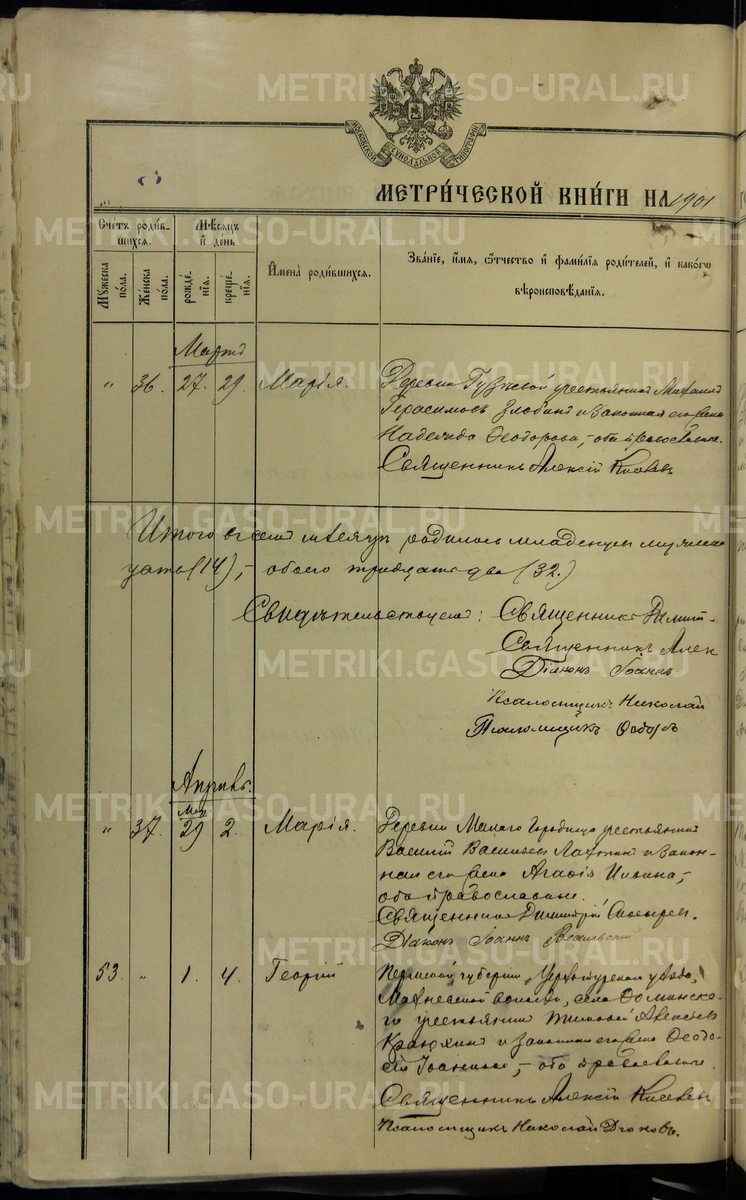 METRIKI.GASO-URAL.RU
МОСКОВСКОЙ СѴНОДАЛЬНОЙ ТИПОГРАФІИ
МЕТРИ́ЧЕСКОЙ КНИ́ГИ НА 1901
Сче́тъ роди́вшихся.
Мѣ́сяцъ и҆ де́нь
Мꙋ́жеска по́ла.
Же́нска по́ла.
рожде́нїя.
креще́нїя.
И҆мена̀ роди́вшихся.
Зва́нїе, и҆́мя, ѻ҆́тчество и҆ фамі́лїя роди́телей, и҆ како́гѡ
вѣроисповѣ́данїя.
Мартъ
" 36. 27. 29. Марія.
Деревни крестьянинъ Михаилъ
Герасимовъ Злобинъ и законная его жена
Надежда Ѳеодорова, - оба православные.
Священникъ Алексій
Итого въ семъ мѣсяцѣ родилось младенцевъ
цать (14), - обоего тридцать два (32.)
Свидѣтельствуемъ: Священникъ Димит-
Священникъ Алек
Діаконъ Іоаннъ
Псаломщикъ Николай
Псаломщикъ Ѳеодоръ
Апрѣль.
Мар.
" 37. 29 2. Марія.
Деревни Малаго Городища крестьянинъ
Василій Васильевъ и закон-
ная его жена Агафія Ильина, -
оба православные.
Священникъ Димитрій
Діаконъ Іоаннъ
53. " 1. 4. Георгій
Пермской губерніи, Верхотурскаго уѣзда,
Махневской волости, села Ѳоминска-
го крестьянинъ Тимоѳей Алексѣевъ
и законная его жена Ѳеодо-
сія Іоаннова, - оба православные.
Священникъ Алексій
Псаломщикъ Николай